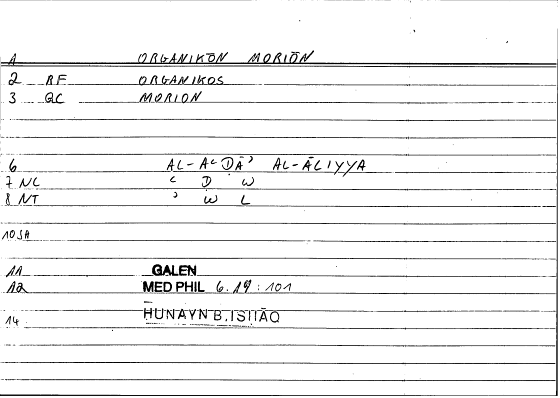 1 ORGANIKŌN MORIŌN
2 RF ORGANIKOS
3 QC MORION
6 AL-AʿḌĀʾ AL-ĀLIYYA
7 NL ʿ Ḍ W
8 NT ʾ W L
10 SA
11 GALEN
12 MED PHIL 6.19:101
14 HUNAYN B.ISHĀQ